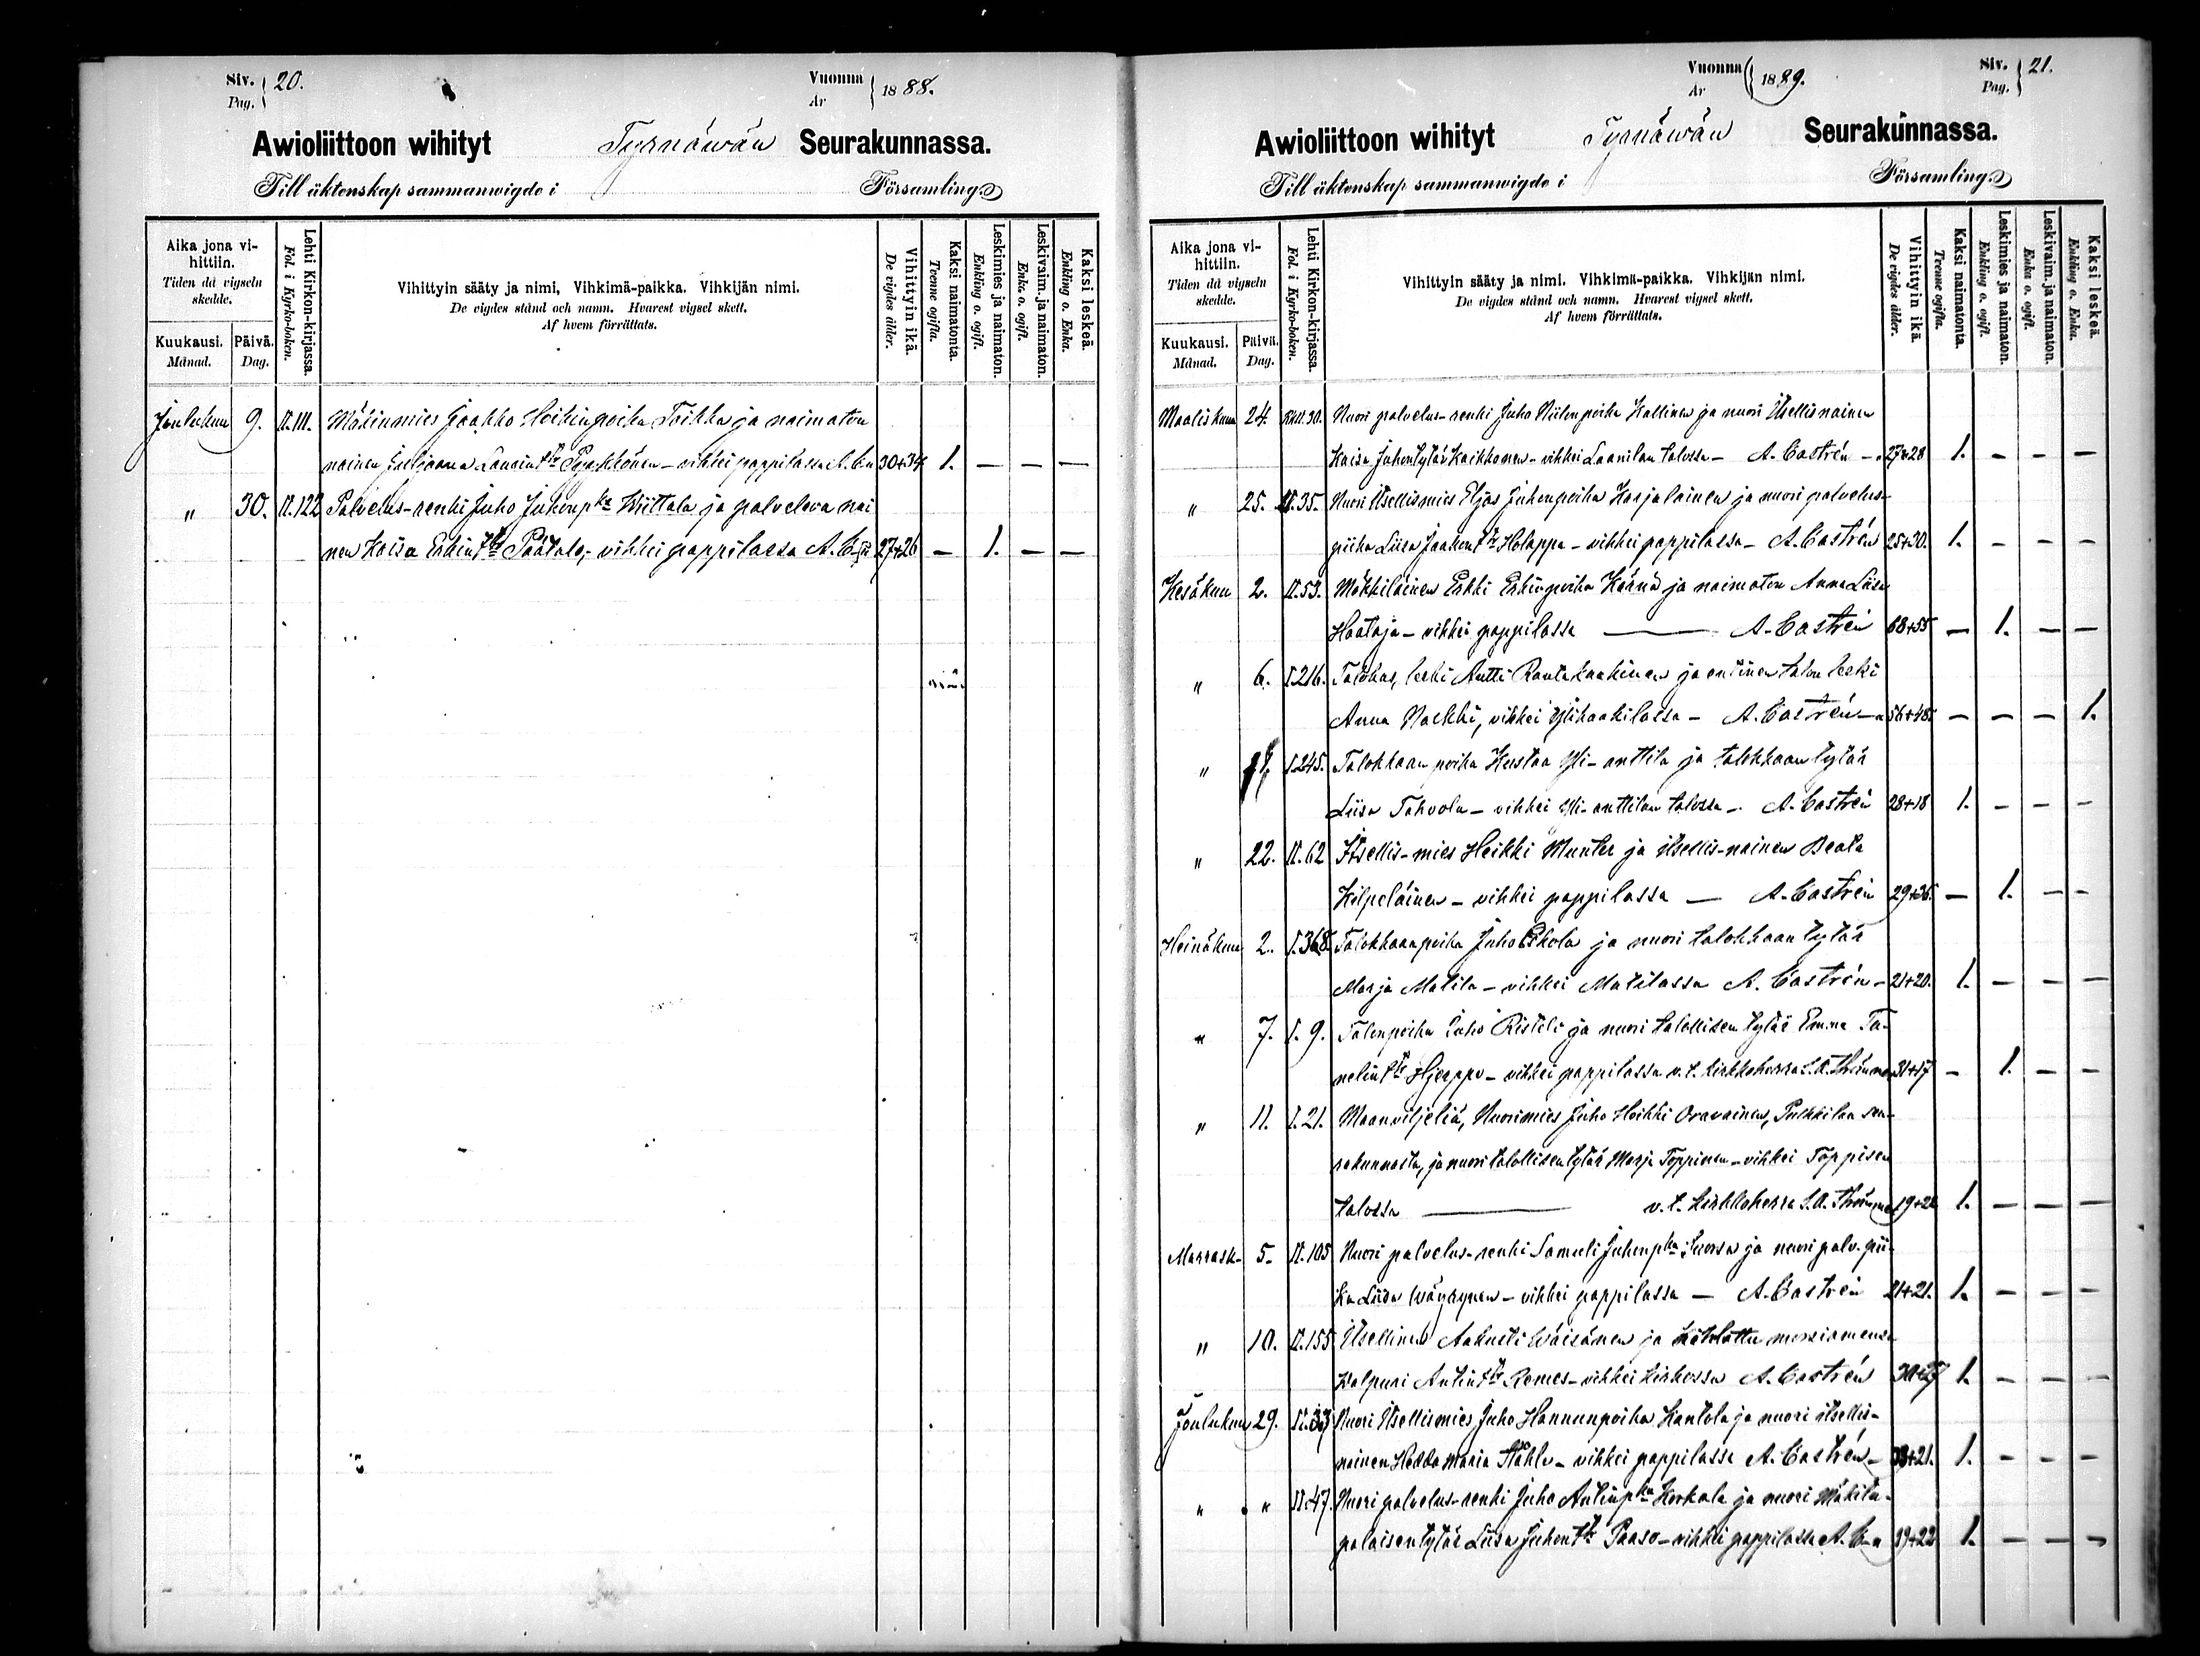 Siv. 20.
Pag.
Vuonna 1888.
År
Awioliittoon wihityt Tyrnäwän Seurakunnassa.
Till äktenskap sammanwigde i Församling.
Aika jona vihittiin.
Tiden då vigseln skedde.
Kuukausi. Månad.
Päivä. Dag.
Lehti Kirkon-kirjassa. Fol. i Kyrko-boken.
Vihittyin sääty ja nimi, Vihkimä-paikka. Vihkijän nimi.
De vigdes stånd och namn. Hvarest vigsel skett.
Af hvem förrättats.
Vihittyin ikä. De vigdes ålder.
Kaksi naimatonta. Tvenne ogifta.
Leskimies ja naimaton. Enkling o. ogift.
Leskivaim. ja naimaton. Enka o. ogift.
Kaksi leskeä. Enkling o. Enka.
Joulukuu 9. II.111. Mäkinmies Jaakko Heikinpoika Toikka ja naimaton
nainen Juljaana Laurin tr Pyykkönen - vihki pappilassa A. C-n 30+34 1. — — —
" 30. II.122 Palvelus-renki Juho Juhonpka Kiittala ja palveleva nai
nen Kaisa Erkin tr Päätalo, - vihki pappilassa A. C-én 27+26 — 1. — —
Vuonna 1889.
År
Siv. 21.
Pag.
Awioliittoon wihityt Tyrnäwän Seurakunnassa.
Till äktenskap sammanwigde i Församling.
Aika jona vihittiin.
Tiden då vigseln skedde.
Kuukausi. Månad.
Päivä. Dag.
Lehti Kirkon-kirjassa. Fol. i Kyrko-boken.
Vihittyin sääty ja nimi. Vihkimä-paikka. Vihkijän nimi.
De vigdes stånd och namn. Hvarest vigsel skett.
Af hvem förrättats.
Vihittyin ikä. De vigdes ålder.
Kaksi naimatonta. Tvenne ogifta.
Leskimies ja naimaton. Enkling o. ogift.
Leskivaim. ja naimaton. Enka o. ogift.
Kaksi leskeä. Enkling o. Enka.
Maaliskuu 24. 30. Nuori palvelus-renki Juho Niilonpoika Kallinen ja nuori Itsellisnainen
Kaisa Juhontytär Kaikkonen - vihki Laanilan talossa - A. Castrén - 27+28 1. — — —
" 25. II.35. Nuori Itsellismies Eljas Juhonpoika Karjalainen ja nuori palvelus-
piika Liisa Jaakon tr Holappa - vihki pappilassa - A. Castrén 25+30. 1. — — —
Kesäkuu 2. II.53. Mökkiläinen Erkki Erkinpoika Kärnä ja naimaton Anna Liisa
Haataja - vihki pappilassa — A. Castrén 68+55 — 1. — —
" 6. I.216. Talokas, leski Antti Rautakaakinen ja entinen talon leski
Anna Markki, vihki Ylikaakilassa - A. Castrén - 56+48. — — — 1.
" I.245. Talokkaan poika Kustaa Yli-anttila ja talokkaan tytär
Liisa Tahvola - vihki Yli-anttilan talossa - A. Castrén 28+18 1. — — —
" 22. II.62 Itsellis-mies Heikki Munter ja itsellis-nainen Beata
Kilpeläinen - vihki pappilassa — A. Castrén 29+36. — 1. — —
Heinäkuu 2. I.368. Talokkaanpoika Juho Eskola ja nuori talokkaan tytär
Marja Matila - vihki Matilassa A. Castrén - 21+20. 1. — — —
" 7. I.9. Talonpoika Juho Risteli ja nuori talollisen tytär Emma Ta-
nelin tr Hjerppe - vihki pappilassa v.t. kirkkoherra 31+17 — 1. — —
" 11. I.21. Maanviljeliä, Nuorimies Juho Heikki Oravainen, Pulkkilan seu-
rakunnasta, ja nuori talollisen tytär Marja Toppinen - vihki Toppisen
talossa — v.t. kirkkoherra 19+26 1. — — —
Marrask. 5. II.105 Nuori palvelus-renki Samuli Juhonpka Suorsa ja nuori palv. pii-
ka Liisa Wäyrynen - vihki pappilassa — A. Castrén 21+21. 1. — — —
" 10. II.155 Itsellinen Aakusti Wäisänen ja morsiamensa
Walpuri Antin tr Remes - vihki kirkossa A. Castrén 1. — — —
Joulukuu 29. II.37 Nuori Itsellismies Juho Hannunpoika Kantola ja nuori itsellis-
nainen Hedda Maria Ståhle - vihki pappilassa A. Castrén - 1. — — —
" " II.47. Nuori palvelus-renki Juho Antinpka Korkala ja nuori Mäkitu-
palaisen tytär Liisa Juhon tr Paaso - vihki pappilassa A. C-n 1. — — —